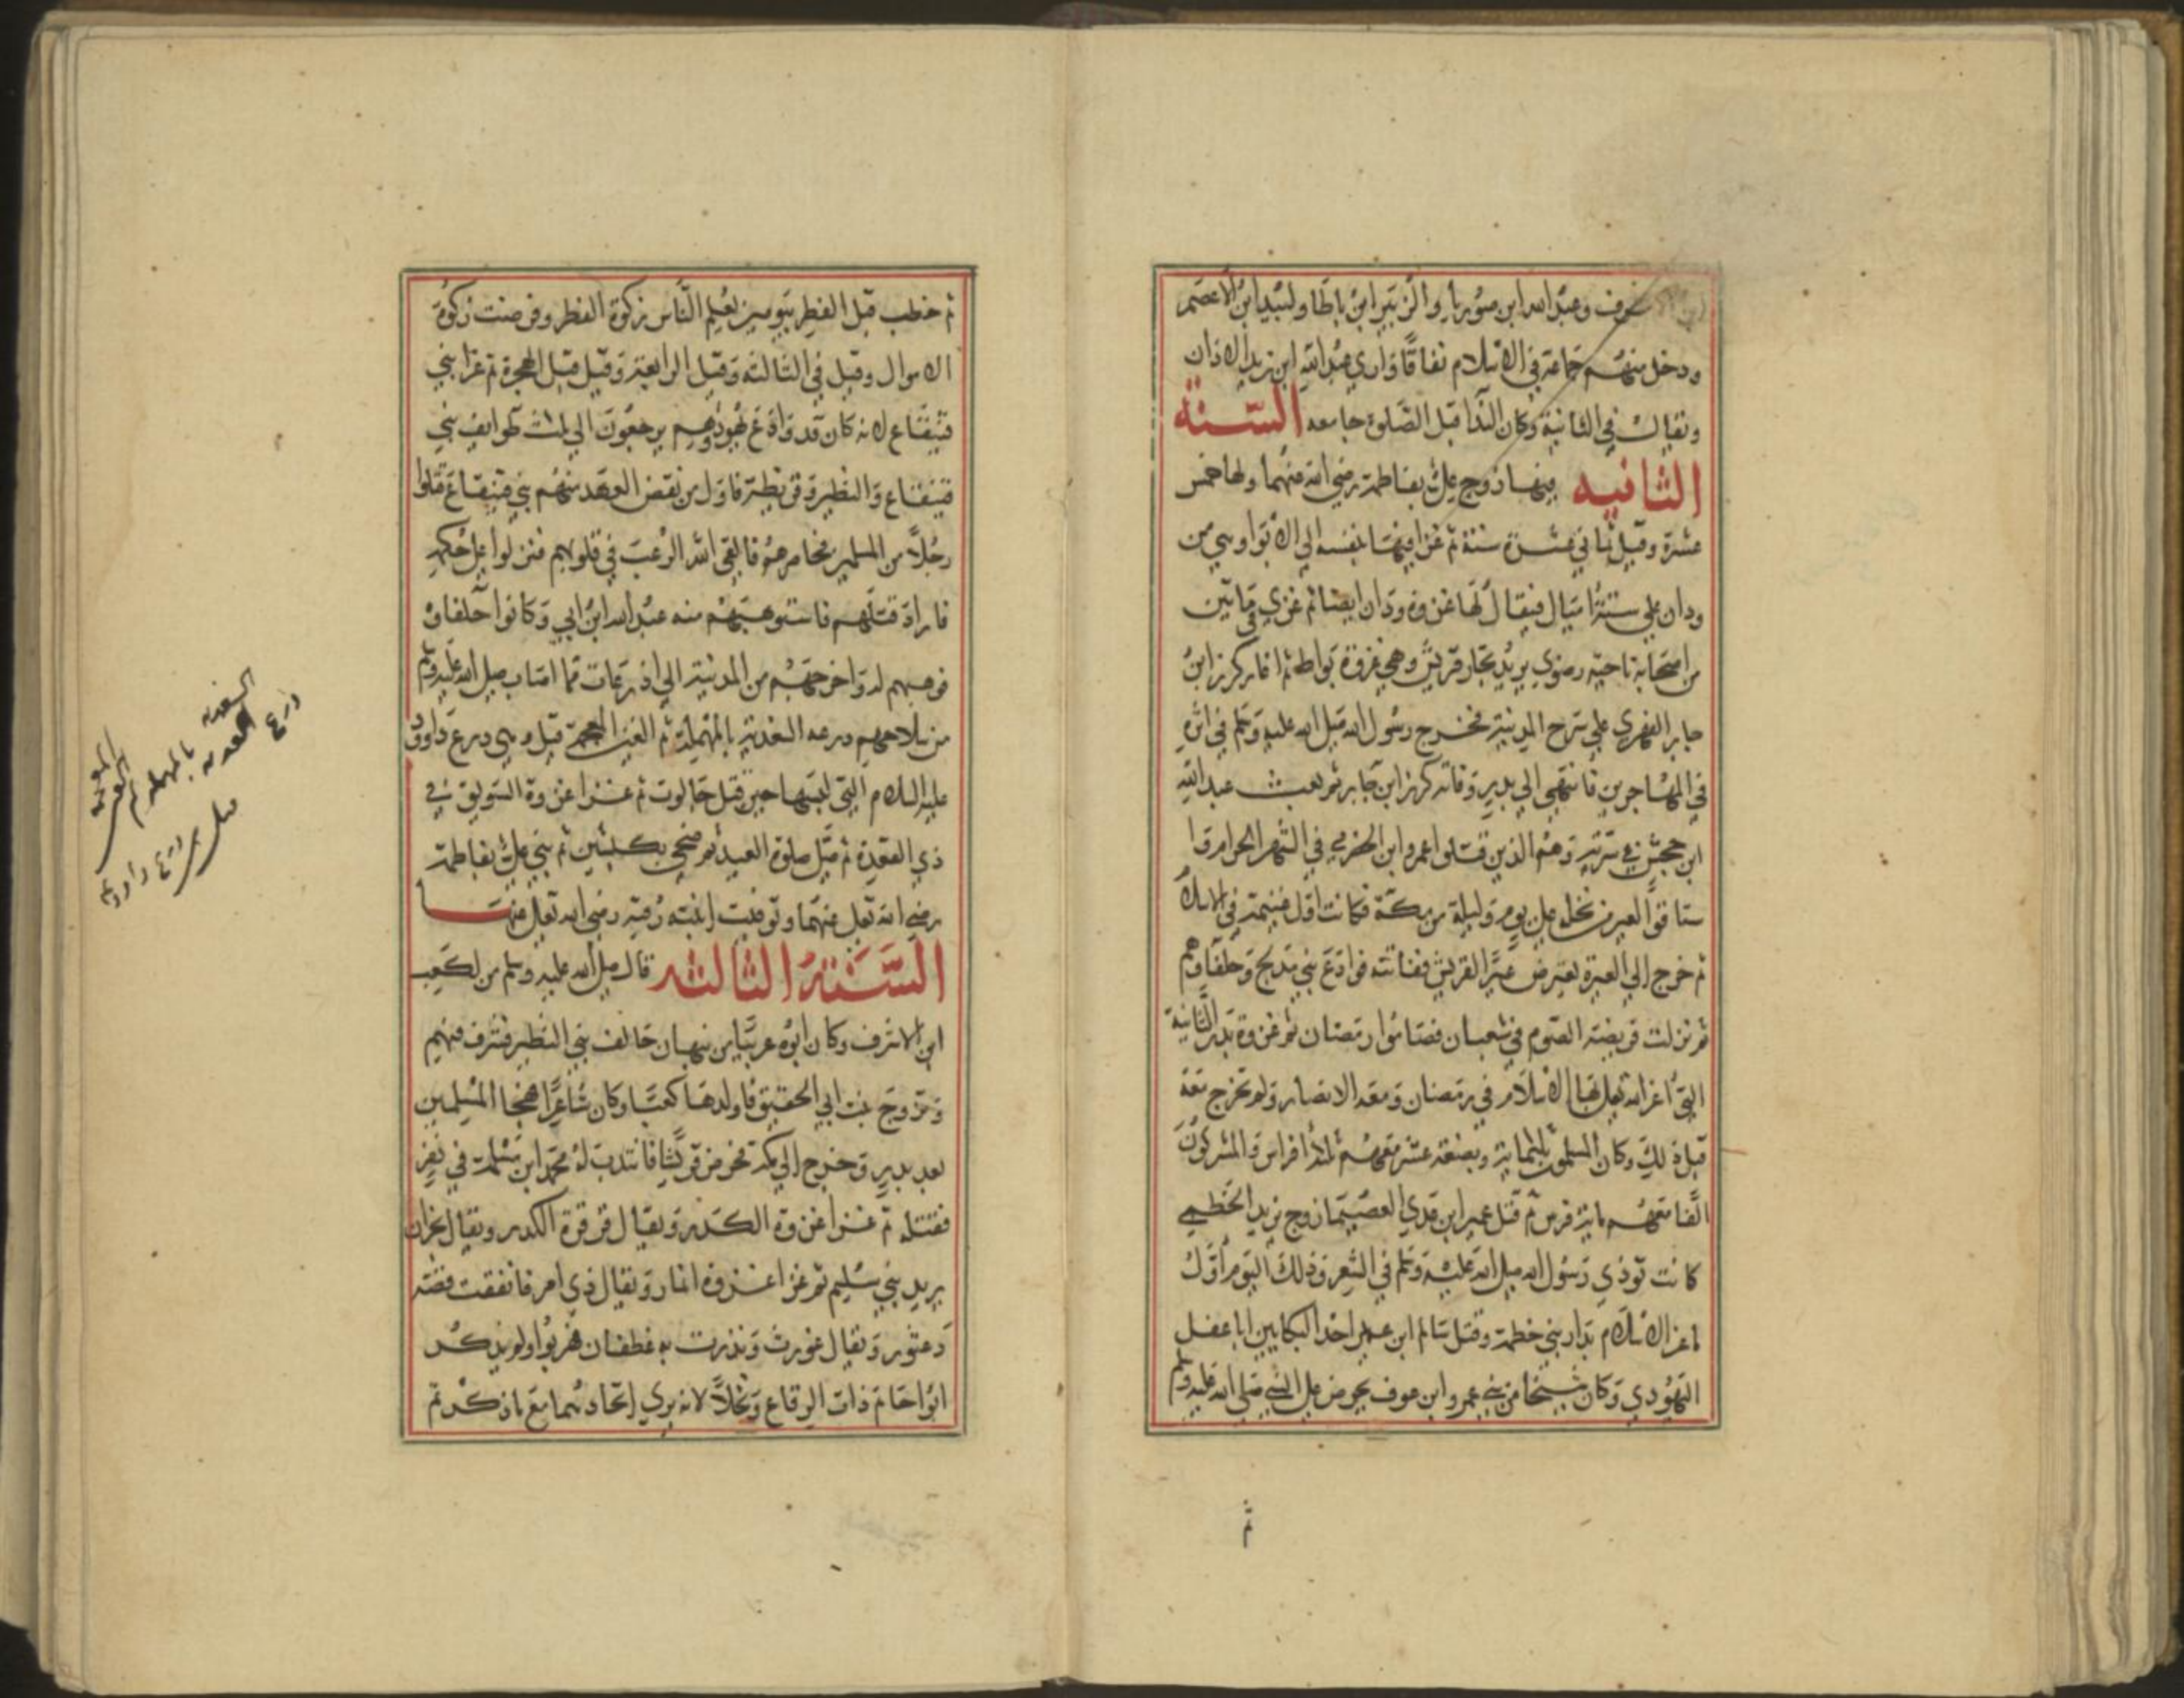 الاشرف وعبد الله ابن صوريا والزبير ابن باطا ولبيد ابن الاعصم
ودخل منهم جماعة في الاسلام نفاقا واري عبد الله ابن زيد الاذان
ويقال في الثانية وكان الندا قبل الصلوة جامعه السنة
الثانيه فيها زوج علي بفاطمة رضي الله عنهما ولها خمس
عشرة وقيل ثماني عشرة سنة ثم غزا فيها بنفسه الي الابوا وهي من
ودان علي ستة اميال فيقال لها غزوة ودان ايضا ثم غزي في مايتين
من اصحابه ناحية رضوي يريد تجار قريش وهي غزوة بواط ثم اغار كرز ابن
جابر الفهري علي سرح المدينة فخرج رسول الله صلي الله عليه وسلم في اثره
في المهاجرين فانتهي الي بدر وفاته كرز ابن جابر ثم بعث عبد الله
ابن جحش في سرية وهم الذين قتلوا عمرو ابن الحضرمي في الشهر الحرام وا
ستاقوا العير من نخلة علي يوم وليلة من مكة فكانت اول غنيمة في الاسلام
ثم خرج الي العيرة يعترض عيرا لقريش ففاتته فوادع بني مدلج وحلفاوهم
ثم نزلت فريضة الصوم في شعبان فصاموا رمضان ثم غزوة بدر الثانية
التي اعز الله تعالي بها الاسلام في رمضان ومعه الانصار ولم تخرج معه
قبل ذلك وكان المسلمون ثلثماية وبضعة عشر معهم ثلثة افراس والمشركون
الفا معهم ماية فرس ثم قتل عمير ابن عدي العصيما زوج يزيد الخطمي
كانت توذي رسول الله صلي الله عليه وسلم في الشعر وذلك اليوم اول
ما عز الاسلام بدار بني خطمة وقتل سالم ابن عمير احد البكايين ابا عفل
اليهودي وكان شيخا من بني عمرو ابن عوف يحرض علي النبي صلي الله عليه وسلم
ثم
ثم خطب قبل الفطر بيومين يعلم الناس زكوة الفطر وفرضت زكوة
الاموال وقيل في الثالثة وقيل الرابعة وقيل قبل الهجرة ثم غزا بني
قينقاع لانه كان قد وادع يهود وهم يرجعون الي ثلث طوايف بني
قينقاع والنضير وقريظة فاول من نقض العهد منهم بني قينقاع قتلوا
رجلا من المسلمين فحاصرهم فالقي الله الرعب في قلوبهم فنزلوا علي حكمه
فاراد قتلهم فاستوهبهم منه عبد الله ابن ابي وكانوا حلفاوه
فوهبهم له واخرجهم من المدينة الي اذرعات مما اصاب صلي الله عليه وسلم
من سلاحهم درعه السغدية بالمهملة ثم الغين المعجمة قيل هي درع داوود
عليه السلام التي لبسها حين قتل جالوت ثم غزا غزوة السويق في
ذي القعدة ثم صلي صلوة العيد ثم ضحي بكبشين ثم بني علي بفاطمة
رضي الله تعالي عنهما وتوفيت ابنته رقية رضي الله تعالي عنها
السنة الثالثه قال صلي الله عليه وسلم من لكعب
ابن الاشرف وكان ابوه عربيا من نبهان حالف بني النضير فشرف فيهم
وتزوج بنت ابي الحقيق فاولدها كعبا وكان شاعرا فهجا المسلمين
بعد بدر وخرج الي مكة فحرض قريشا فانتدب له محمد ابن مسلمة في نفر
فقتله ثم غزا غزوة الكدر ويقال قرقرة الكدر ويقال نجران
يريد بني سليم ثم غزا غزوة انمار ويقال ذي امر فاتفقت قصة
دعثور ويقال غورث ونذرت به غطفان فهربوا ولم يذكر
ابو احاتم ذات الرقاع ونخلا لانه يري اتحادهما مع ما ذكر ثم
درع
السغدية
بالمهملة ثم
الغين
المعجمة
قيل هي درع داوود